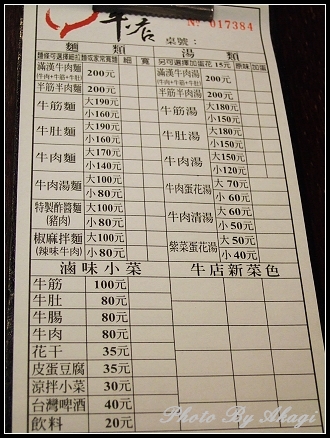 牛店
№ 017384
桌號：
麵 類
湯 類
麵條可選擇細拉麵或家常寬麵 細 寬
另可選擇加蛋花 15元 原味 加蛋
滿漢牛肉麵 200元
(牛肉+牛筋+牛肚)
滿漢牛肉湯 200元
(牛肉+牛筋+牛肚)
半筋半肉麵 200元
半筋半肉湯 200元
牛筋麵 大190元
小160元
牛筋湯 大180元
小150元
牛肚麵 大190元
小160元
牛肚湯 大180元
小150元
牛肉麵 大170元
小140元
牛肉湯 大150元
小120元
牛肉湯麵 大100元
小 80元
牛肉蛋花湯 大 70元
小 60元
特製酢醬麵 大100元
(豬肉) 小 80元
牛肉清湯 大 60元
小 50元
椒麻拌麵 大100元
(辣味牛肉) 小 80元
紫菜蛋花湯 大 50元
小 40元
滷味小菜
牛店新菜色
牛筋 100元
牛肚 80元
牛腸 80元
牛肉 80元
花干 35元
皮蛋豆腐 35元
涼拌小菜 30元
台灣啤酒 40元
飲料 20元
Photo By Akagi